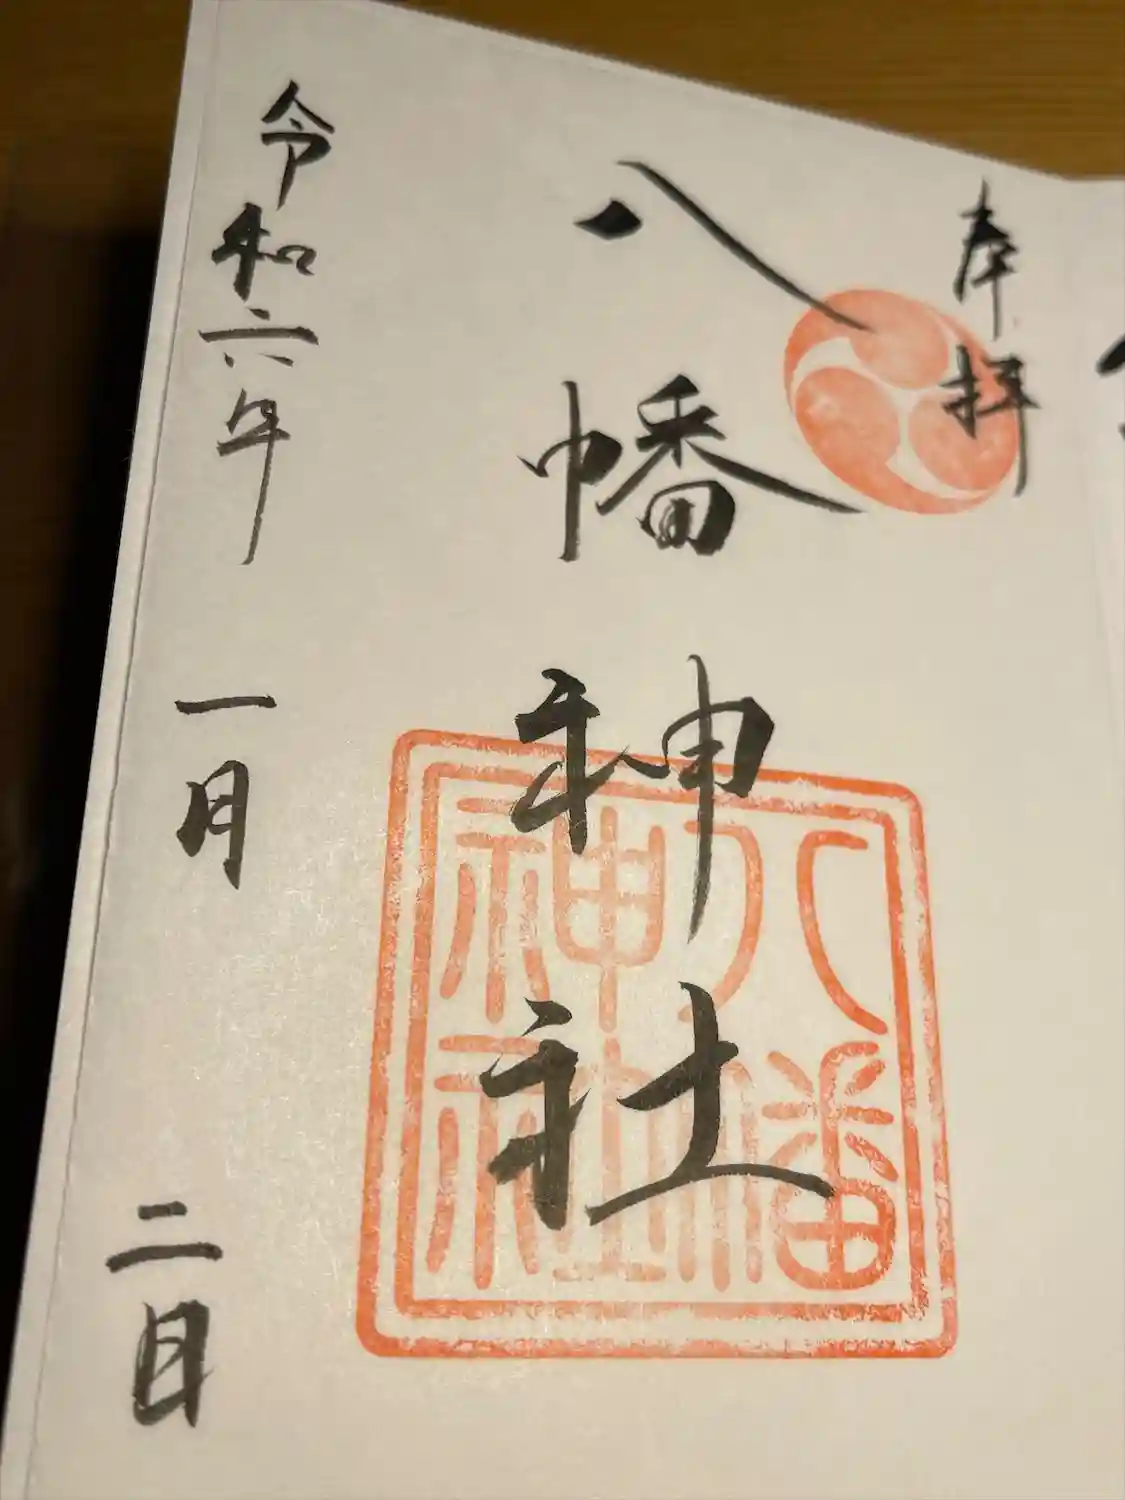 奉拝
八幡神社
八幡
神社
令和六年一月二日